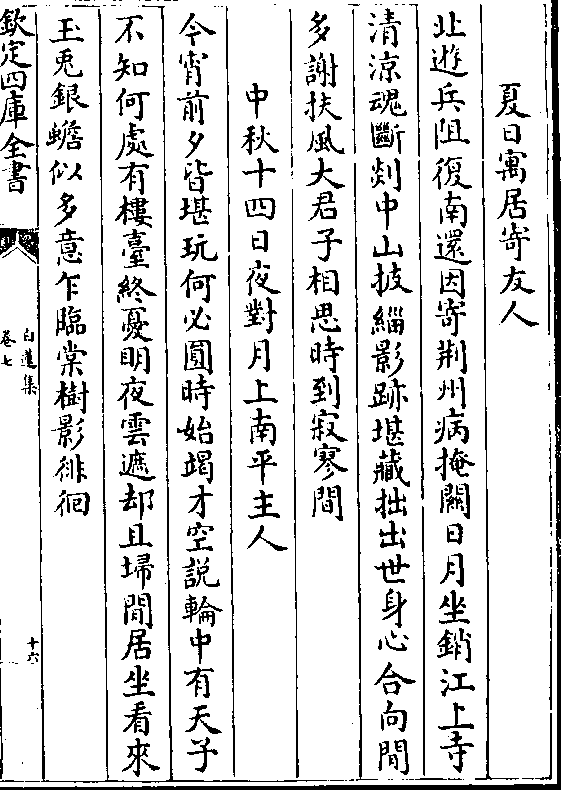 夏日寓居寄友人
北遊兵阻復南還因寄荆州病掩關日月坐銷江上寺
清涼魂斷剡中山披緇影跡堪藏拙出世身心合向閒
多謝扶風大君子相思時到寂寥間
中秋十四日夜對月上南平主人
今宵前夕皆堪玩何必圓時始竭才空說輪中有天子
不知何處有樓臺終憂明夜雲遮却且埽閒居坐看來
玉兎銀蟾似多意乍臨棠樹影徘徊
欽定四庫全書
白蓮集
卷七
十六